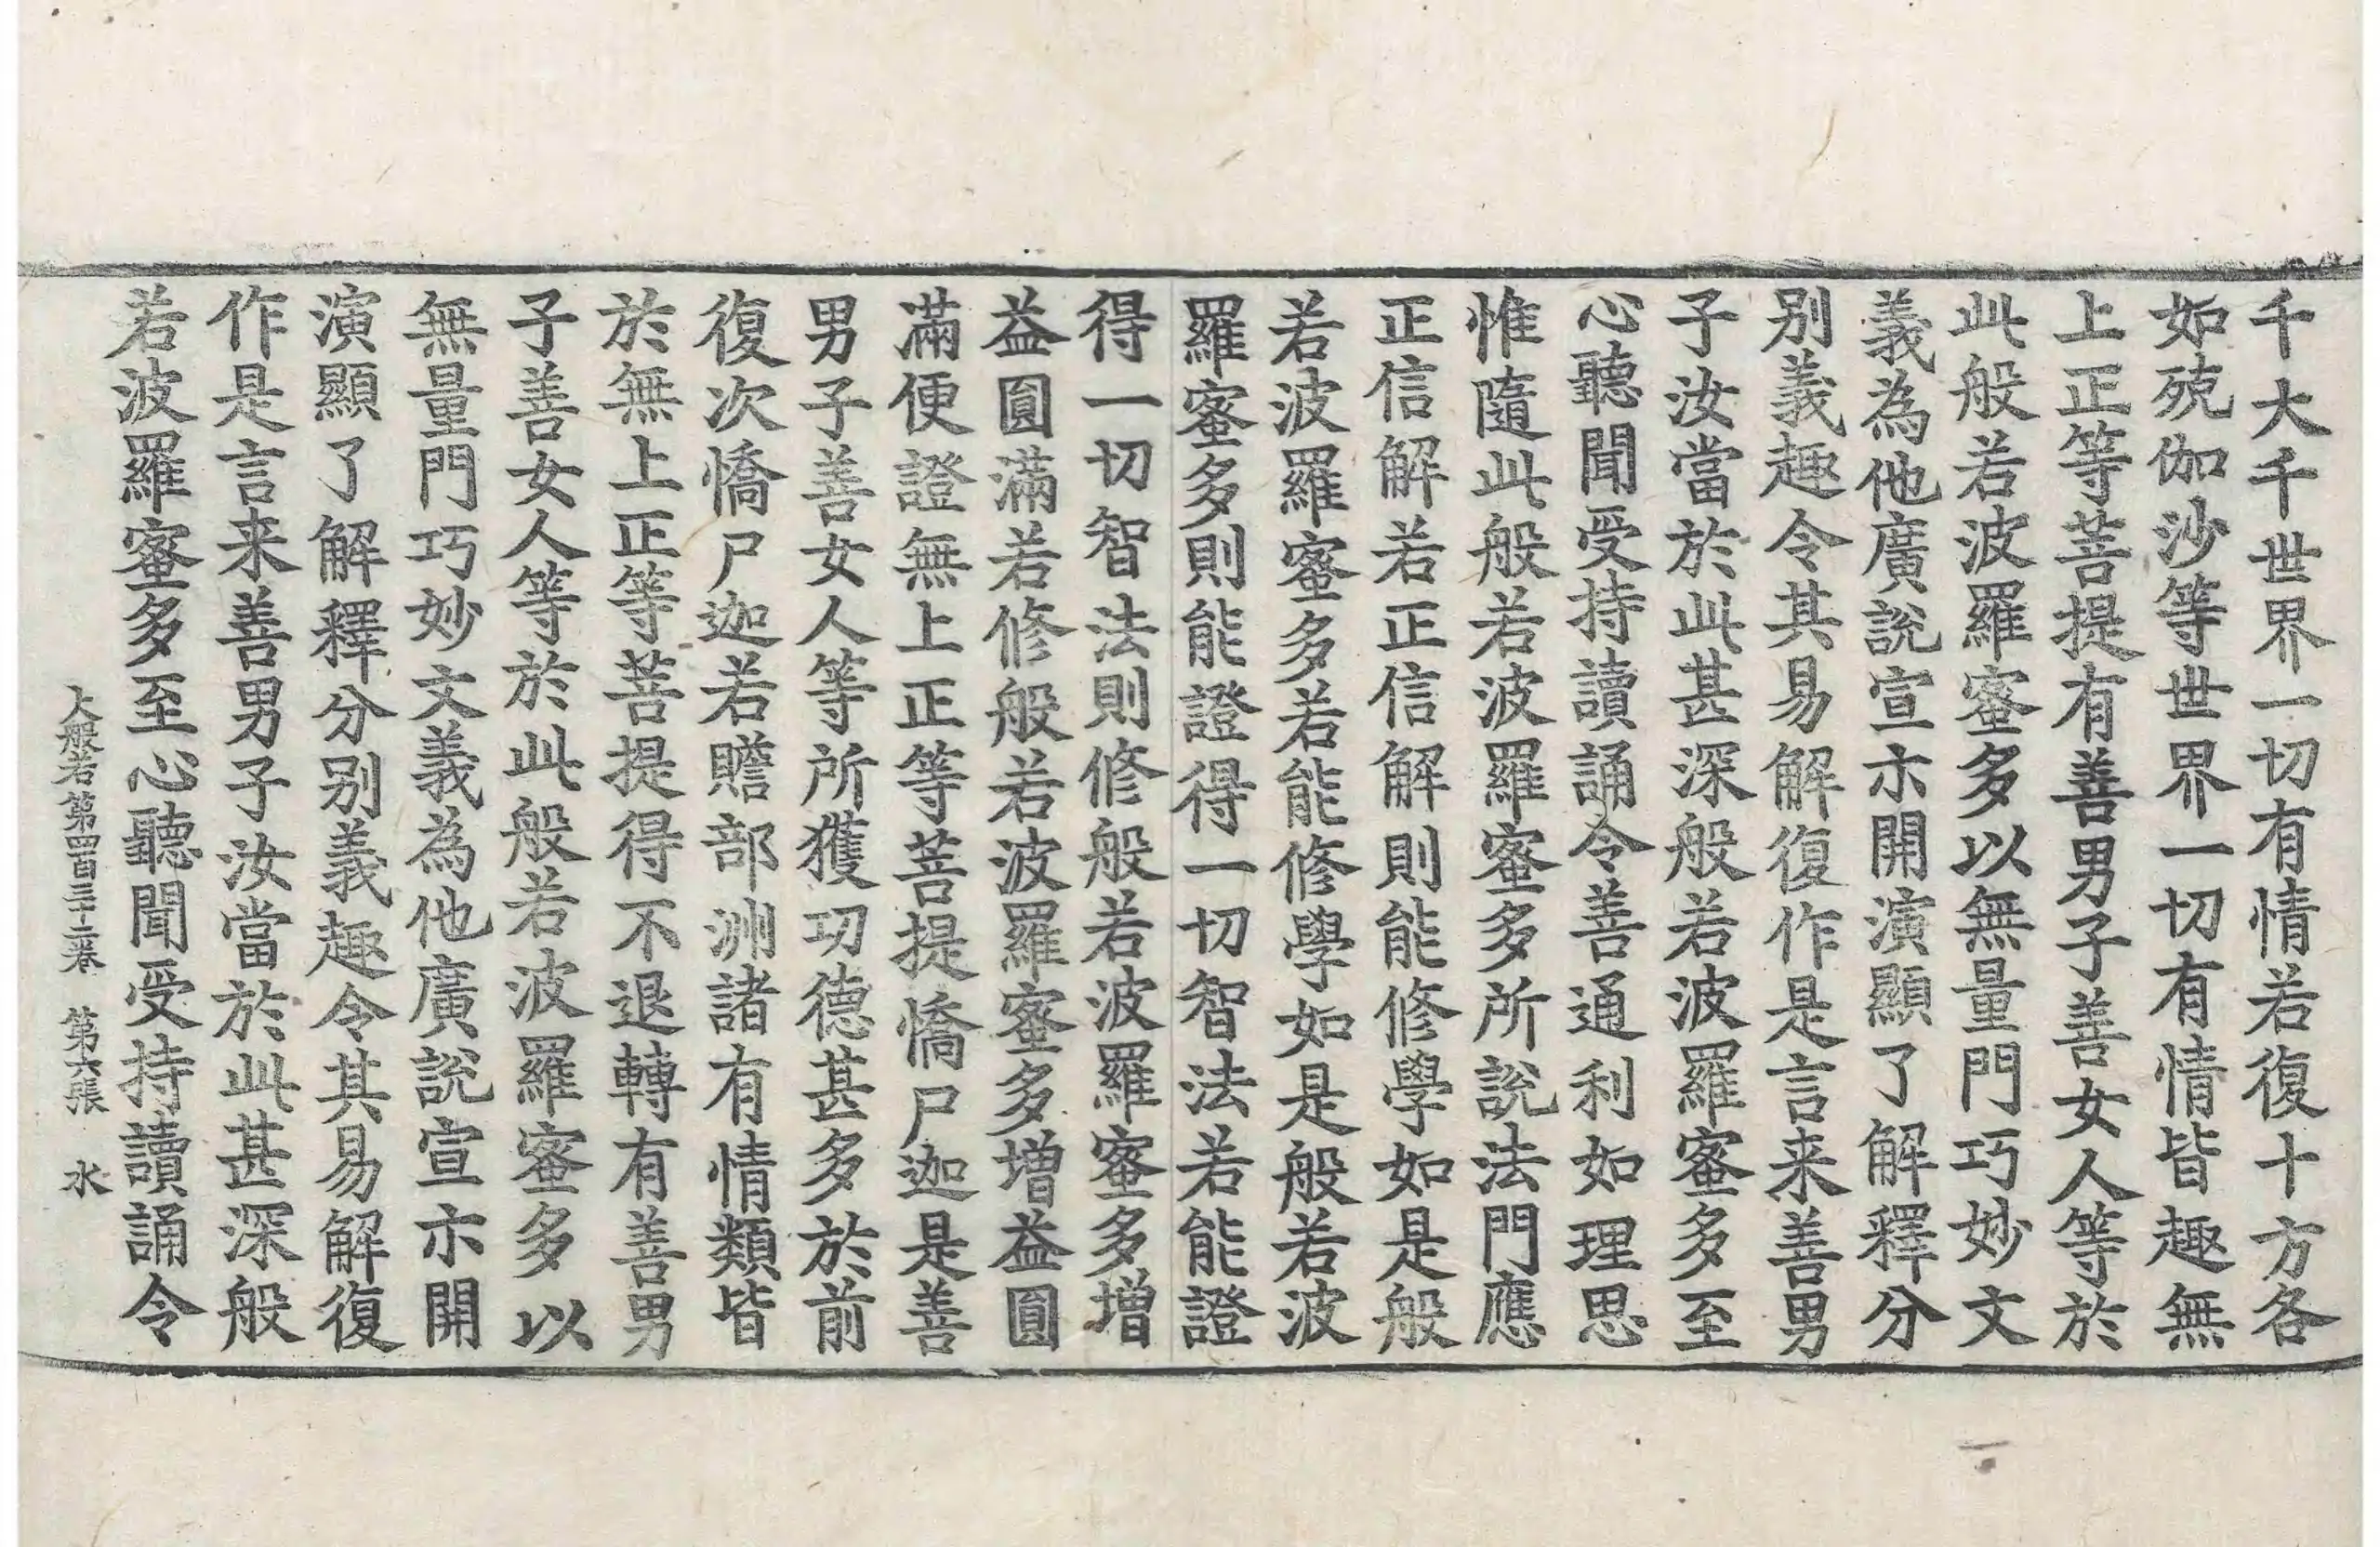 千大千世界一切有情若復十方各
如殑伽沙等世界一切有情皆趣無
上正等菩提有善男子善女人等於
此般若波羅蜜多以無量門巧妙文
義為他廣說宣示開演顯了解釋分
别義趣令其易解復作是言来善男
子汝當於此甚深般若波羅蜜多至
心聽聞受持讀誦令善通利如理思
惟隨此般若波羅蜜多所說法門應
正信解若正信解則能修學如是般
若波羅蜜多若能修學如是般若波
羅蜜多則能證得一切智法若能證
得一切智法則修般若波羅蜜多增
益圓滿若修般若波羅蜜多增益圓
滿便證無上正等菩提憍尸迦是善
男子善女人等所獲功德甚多於前
復次憍尸迦若贍部洲諸有情類皆
於無上正等菩提得不退轉有善男
子善女人等於此般若波羅蜜多以
無量門巧妙文義為他廣說宣示開
演顯了解釋分别義趣令其易解復
作是言来善男子汝當於此甚深般
若波羅蜜多至心聽聞受持讀誦令
大般若第四百三十二卷 第六張 水